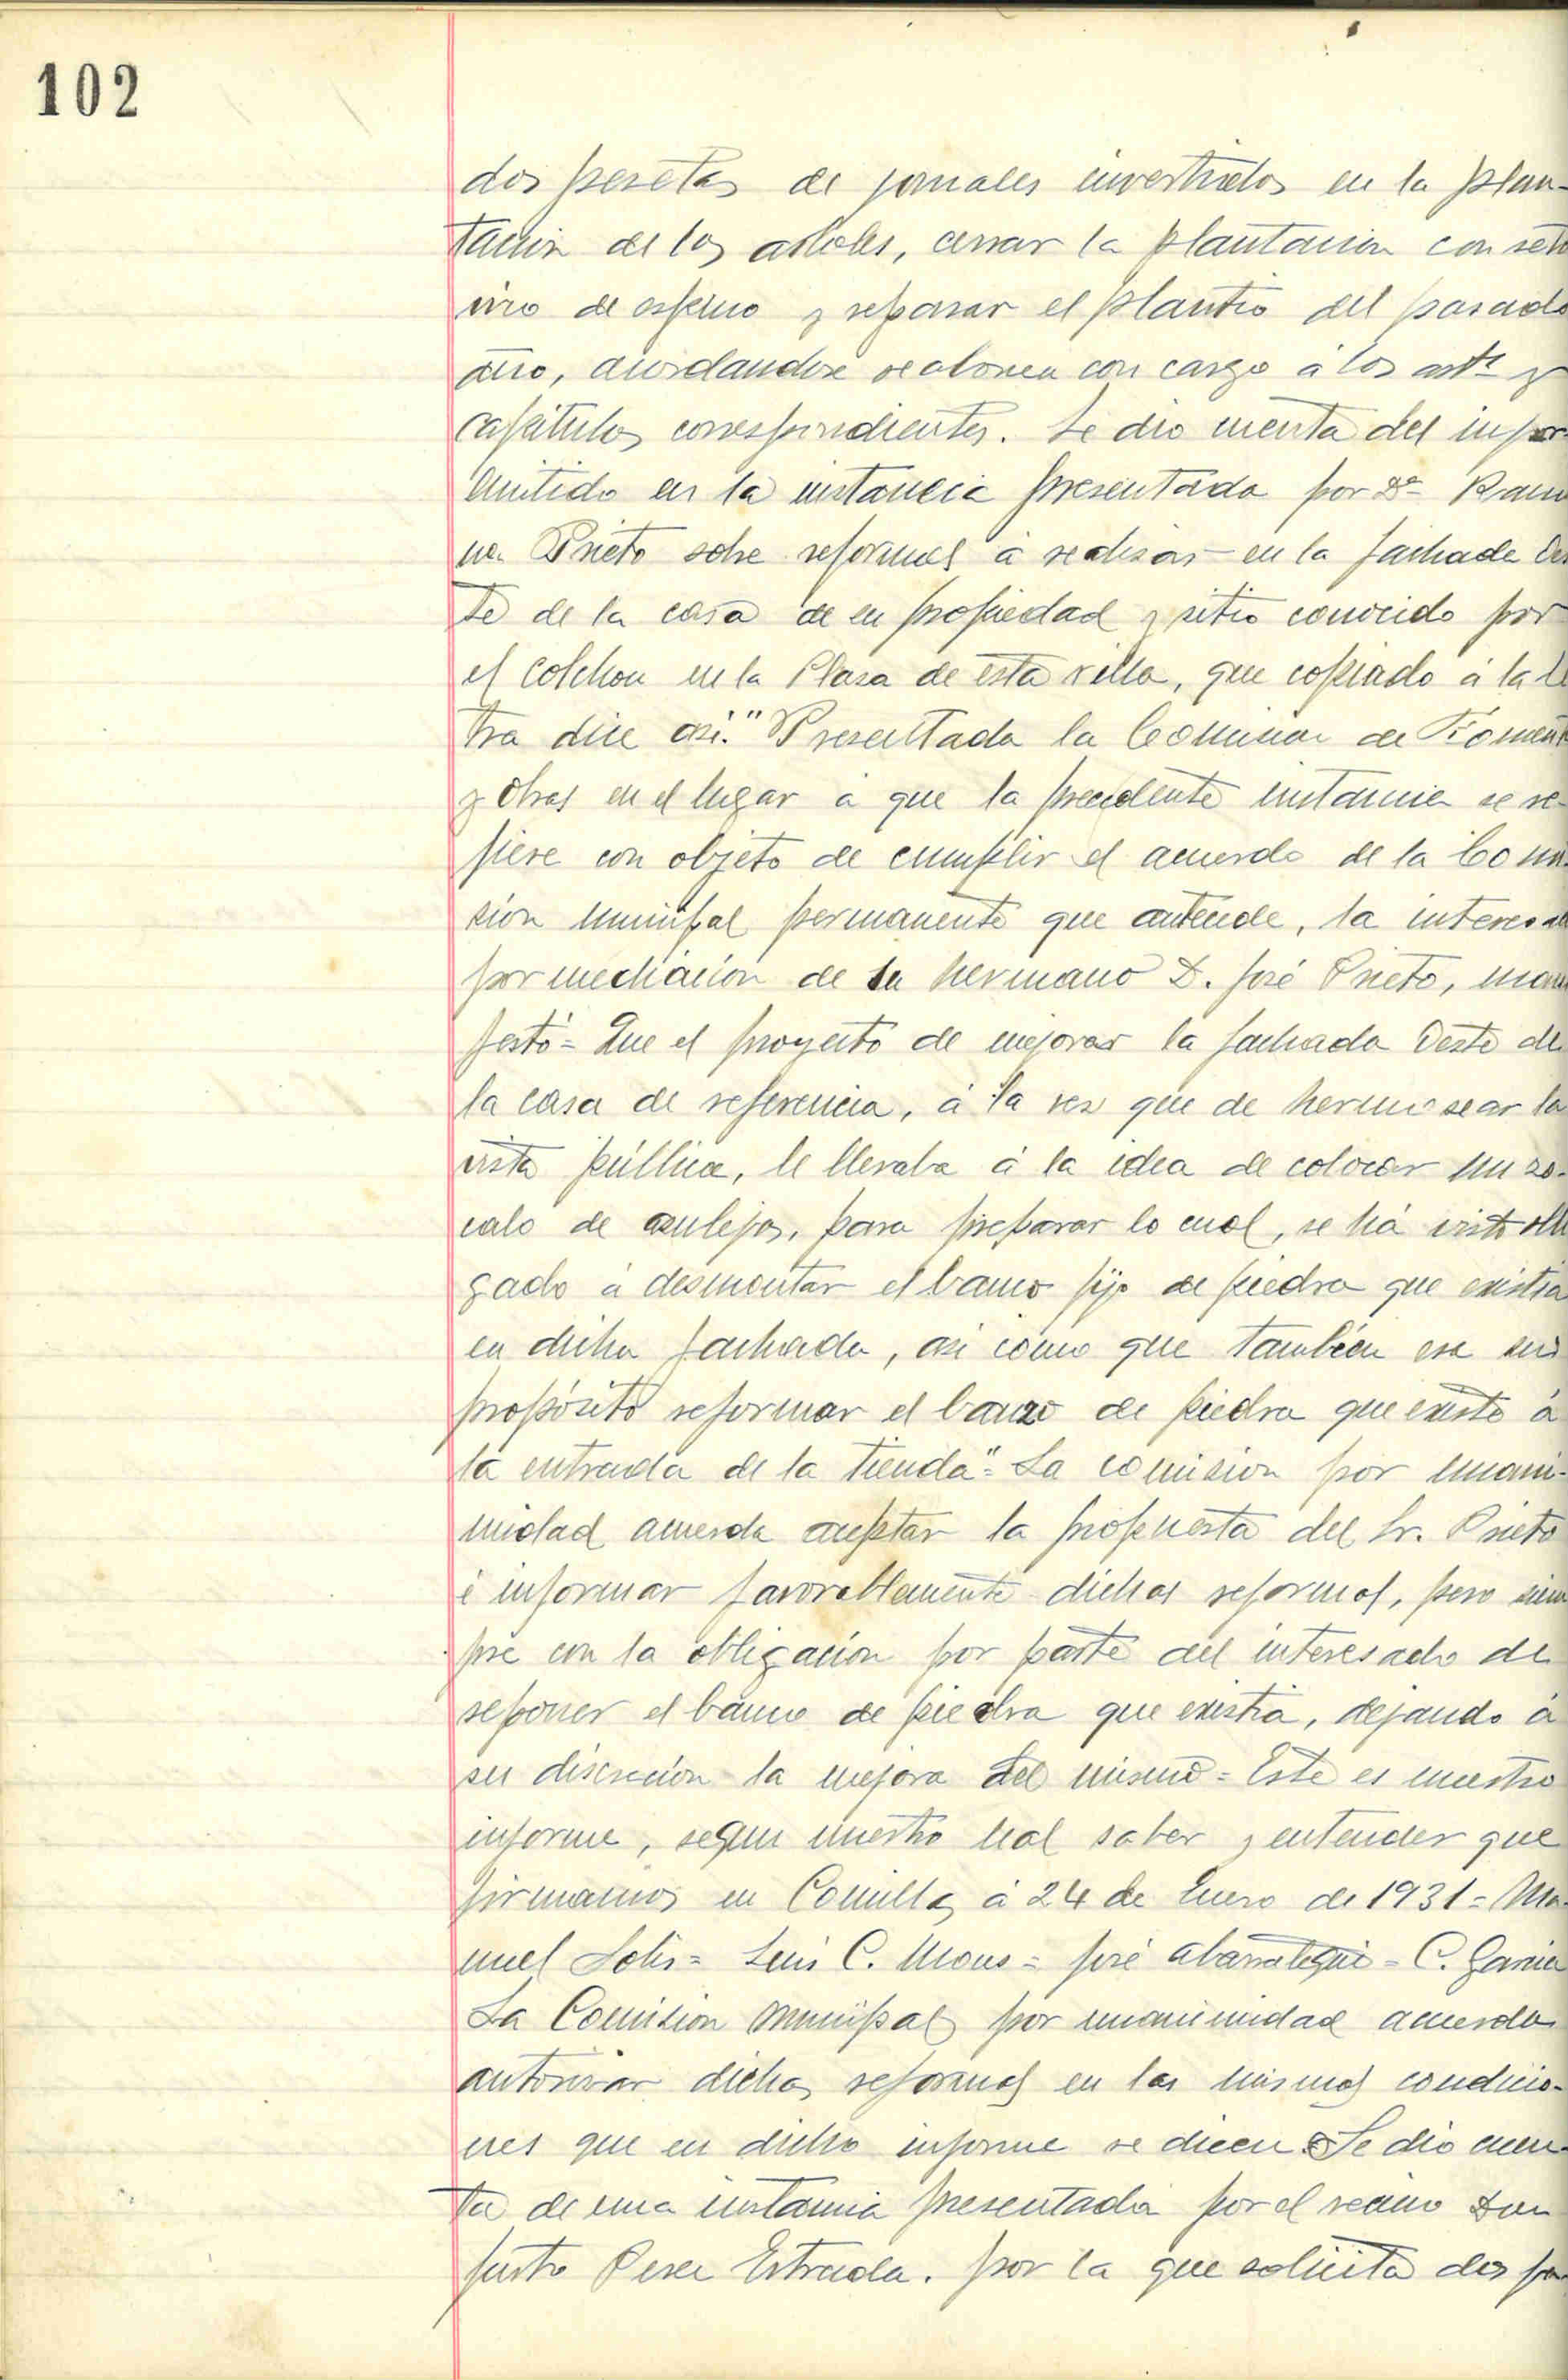 102
dos pesetas de jornales invertidos en la plan-
tación de los arboles, cerrar la plantacion con seto
vivo de espino y reparar el plantio del pasado
año, acordandose se abonen con cargo a los artˢ y
capitulos correspondientes. Se dio cuenta del infor
emitido en la instancia presentada por Dª Ramo
na Prieto sobre reformas á realisar en la fachada Oes
te de la casa de su propiedad y sitio conocido por
el Colchon en la Plasa de esta villa, que copiado á la le
tra dice asi: "Presentada la Comision de Foment
y obras en el lugar a que la precedente instancia se re-
fiere con objeto de cumplir el acuerdo de la Comi
sion municipal permanente que antecede, la interesad
por mediacion de su hermano D. José Prieto, mani
festó = Que el proyecto de mejorar la fachada Oeste de
la casa de referencia, á la vez que de hermosear la
vista pública, le llevaba á la idea de colocar un zo-
calo de azulejos, para preparar lo cual, se há visto obli
gado á desmontar el banco fijo de piedra que existia
en dicha fachada, asi cómo que tambien era su
propósito reformar el banzo de piedra que existe á
la entrada de la tienda" = La comision por unani-
midad acuerda aceptar la propuesta del Sr. Prieto
é informar favorablemente dichas reformas, pero siem
pre con la obligacion por parte del interesado de
reponer el banco de piedra que existia, dejando á
su discrecion la mejora del mismo = Este es nuestro
informe, segun nuestro leal saber y entender que
firmamos en Comillas á 24 de Enero de 1931 = Ma-
nuel Solis = Luis C. Mons = José Abarrategui = C. Garcia
La Comision municipal por unanimidad acuerda
autorizar dichas reformas en las mismas condicio-
nes que en dicho informe se dicen = Se dio cuen-
ta de una instancia presentada por el vecino Don
Justo Perez Estrada. por la que solicita dos pa